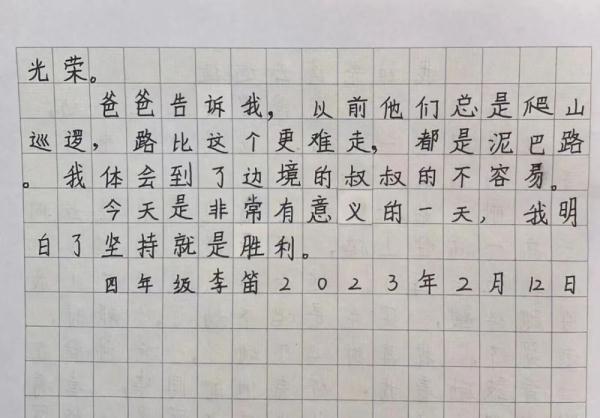 光荣。
爸爸告诉我，以前他们总是爬山
巡逻，路比这个更难走，都是泥巴路
。我体会到了边境的叔叔的不容易。
今天是非常有意义的一天，我明
白了坚持就是胜利。
四年级李笛2023年2月12日